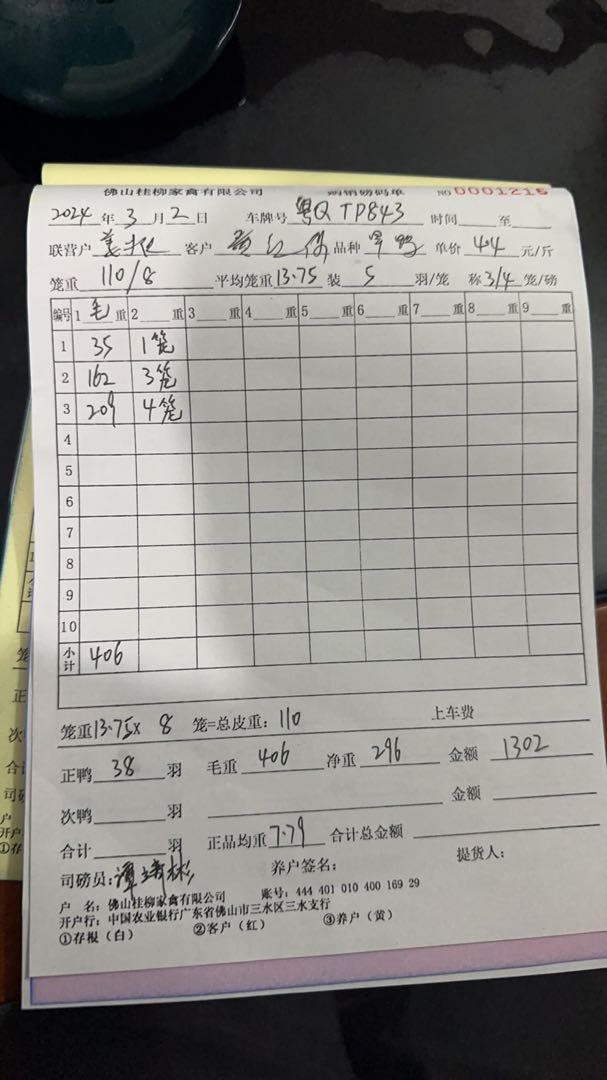 佛山桂柳家禽有限公司 购销磅码单 NO 0001215
2024年3月2日 车牌号 粤Q TP843 时间 至
联营户 客户 品种 旱鸭 单价 4.4 元/斤
笼重 110/8 平均笼重 13.75 装 5 羽/笼 称 3/4 笼/磅
编号 1 毛 重 2 重 3 重 4 重 5 重 6 重 7 重 8 重 9 重
1 35 1笼
2 162 3笼
3 209 4笼
4
5
6
7
8
9
10
小计 406
笼重 13.75 x 8 笼=总皮重: 110 上车费
正鸭 38 羽 毛重 406 净重 296 金额 1302
次鸭 羽 金额
合计 羽 正品均重 7.79 合计总金额
司磅员: 谭 彬 养户签名: 提货人:
户 名: 佛山桂柳家禽有限公司 账号: 444 401 010 400 169 29
开户行: 中国农业银行广东省佛山市三水区三水支行
①存根（白） ②客户（红） ③养户（黄）